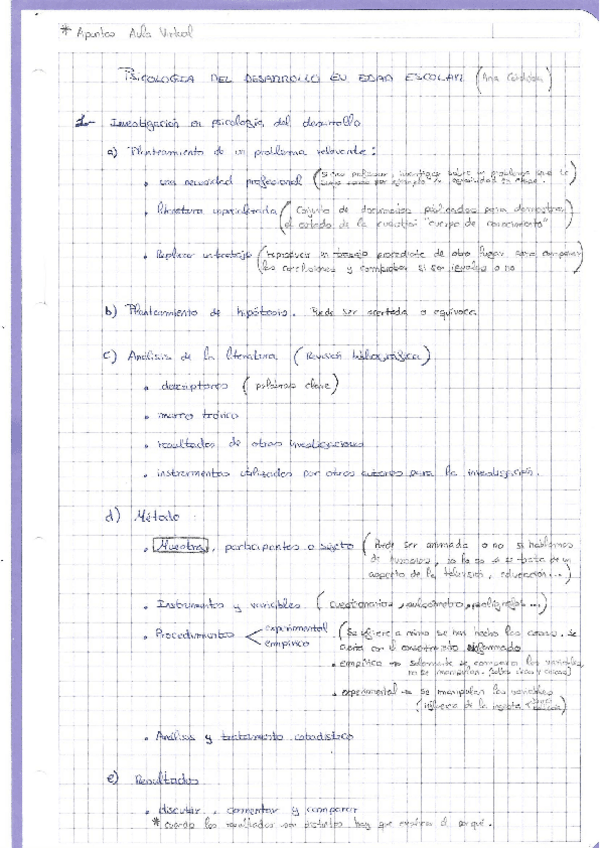 * Apuntes Aula Virtual
PSICOLOGIA DEL DESARROLLO EN EDAD ESCOLAR (Ana Córdoba)
1- Investigación en psicología del desarrollo
a) Planteamiento de un problema relevante:
• una necesidad profesional (si no
• literatura (Conjunto de documentos publicados para demostrar
el estado de la cuestión "cuerpo de conocimiento")
• Replicar un trabajo (reproducir un trabajo procedente de otro lugar para comparar
las conclusiones y comprobar si son iguales o no)
b) Planteamiento de hipótesis. Puede ser acertada o equívoca
c) Análisis de la literatura (Revisión bibliográfica)
• descriptores (palabras clave)
• marco teórico
• resultados de otras investigaciones
• instrumentos utilizados por otros autores para la investigación.
d) Método
• Muestra, participantes o sujeto (Puede ser animada o no si hablamos
de humanos, o si se trata de un
aspecto de la televisión, educación...)
• Instrumentos y variables. (cuestionarios, pulsómetro, polígrafos...)
• Procedimientos < experimental (Se refiere a cómo se han hecho las cosas, se
empírico con el consentimiento informado
• empírico → solamente se comparan las variables,
no se manipulan.
• experimental → se manipulan las variables
(influencia de la
• Análisis y tratamiento estadístico
e) Resultados
• discutir, comentar y comparar
* cuando los resultados son distintos hay que explicar el porqué.